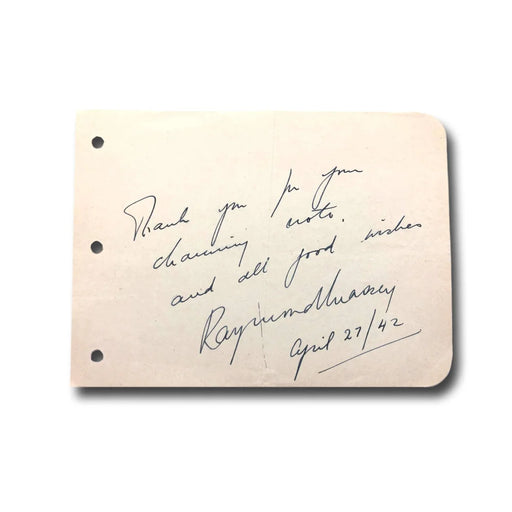 Thank you for your
charming note.
and all good wishes
Raymond Massey
April 27/42